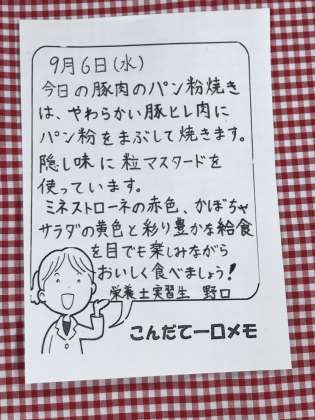 9月6日(水)
今日の豚肉のパン粉焼き
は、やわらかい豚ヒレ肉に
パン粉をまぶして焼きます。
隠し味に粒マスタードを
使っています。
ミネストローネの赤色、かぼちゃ
サラダの黄色と彩り豊かな給食
を目でも楽しみながら
おいしく食べましょう!
栄養士実習生 野口
こんだて一口メモ